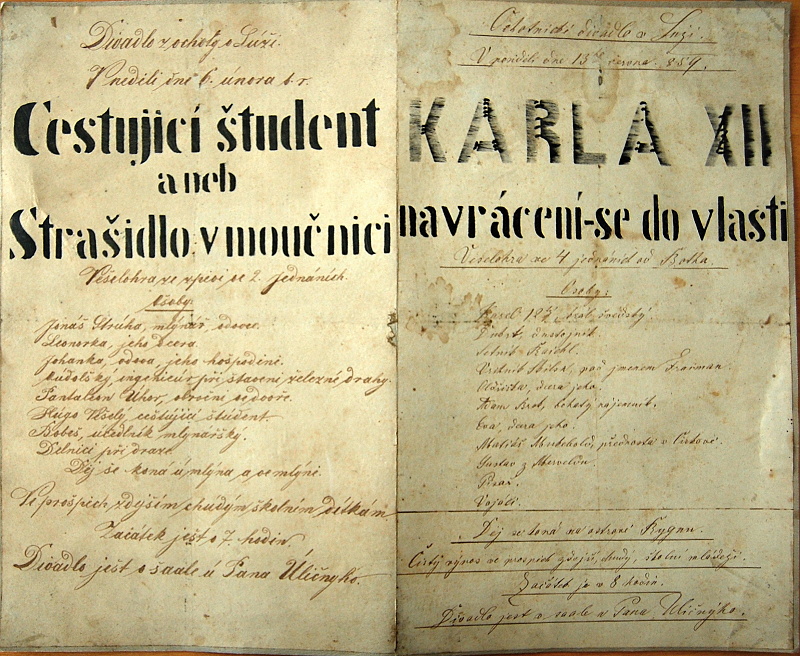 Divadlo z ochoty v Lúži.
V neděli dne 6. února t. r.
Cestující študent
aneb
Strašidlo v moučnici
Veselohra ze zpěvi ve 2. jednáních.
Osoby:
Jonáš Strúha, mlynář, vdovec.
Leonorka, jeho dcera.
Johanka, vdova, jeho hospodině.
ingenieur při stavení železné drahy.
Pantaleon Uhor, obroční ve dvoře.
Hugo Veselý, cestující študent.
Bobeš, učedlník mlynářský.
Dělníci při dráze.
Děj se koná u mlýna a ve mlýně.
Ve prospěch zdejším chudým školním dítkám.
Začátek jest o 7. hodin.
Divadlo jest v saale u Pana Úličnýho.
Ochotnické divadlo v Luži.
V pondělí dne 13. června 859.
KARLA XII
navrácení-se do vlasti
Veselohra ve 4 jednáních od
Osoby:
Karel 12tý, král švédský.
důstojník.
pod jmenem
dcera jeho.
bohatý nájemník.
Eva, dcera jeho.
přednosta v
Gustav z
Písař.
Vojáci.
Děj se koná na ostrově
Čistý výnos ve prospěch zdejší, chudý, školní mládeži.
Začátek je v 8 hodin.
Divadlo jest v saale u Pana Uličnýho.